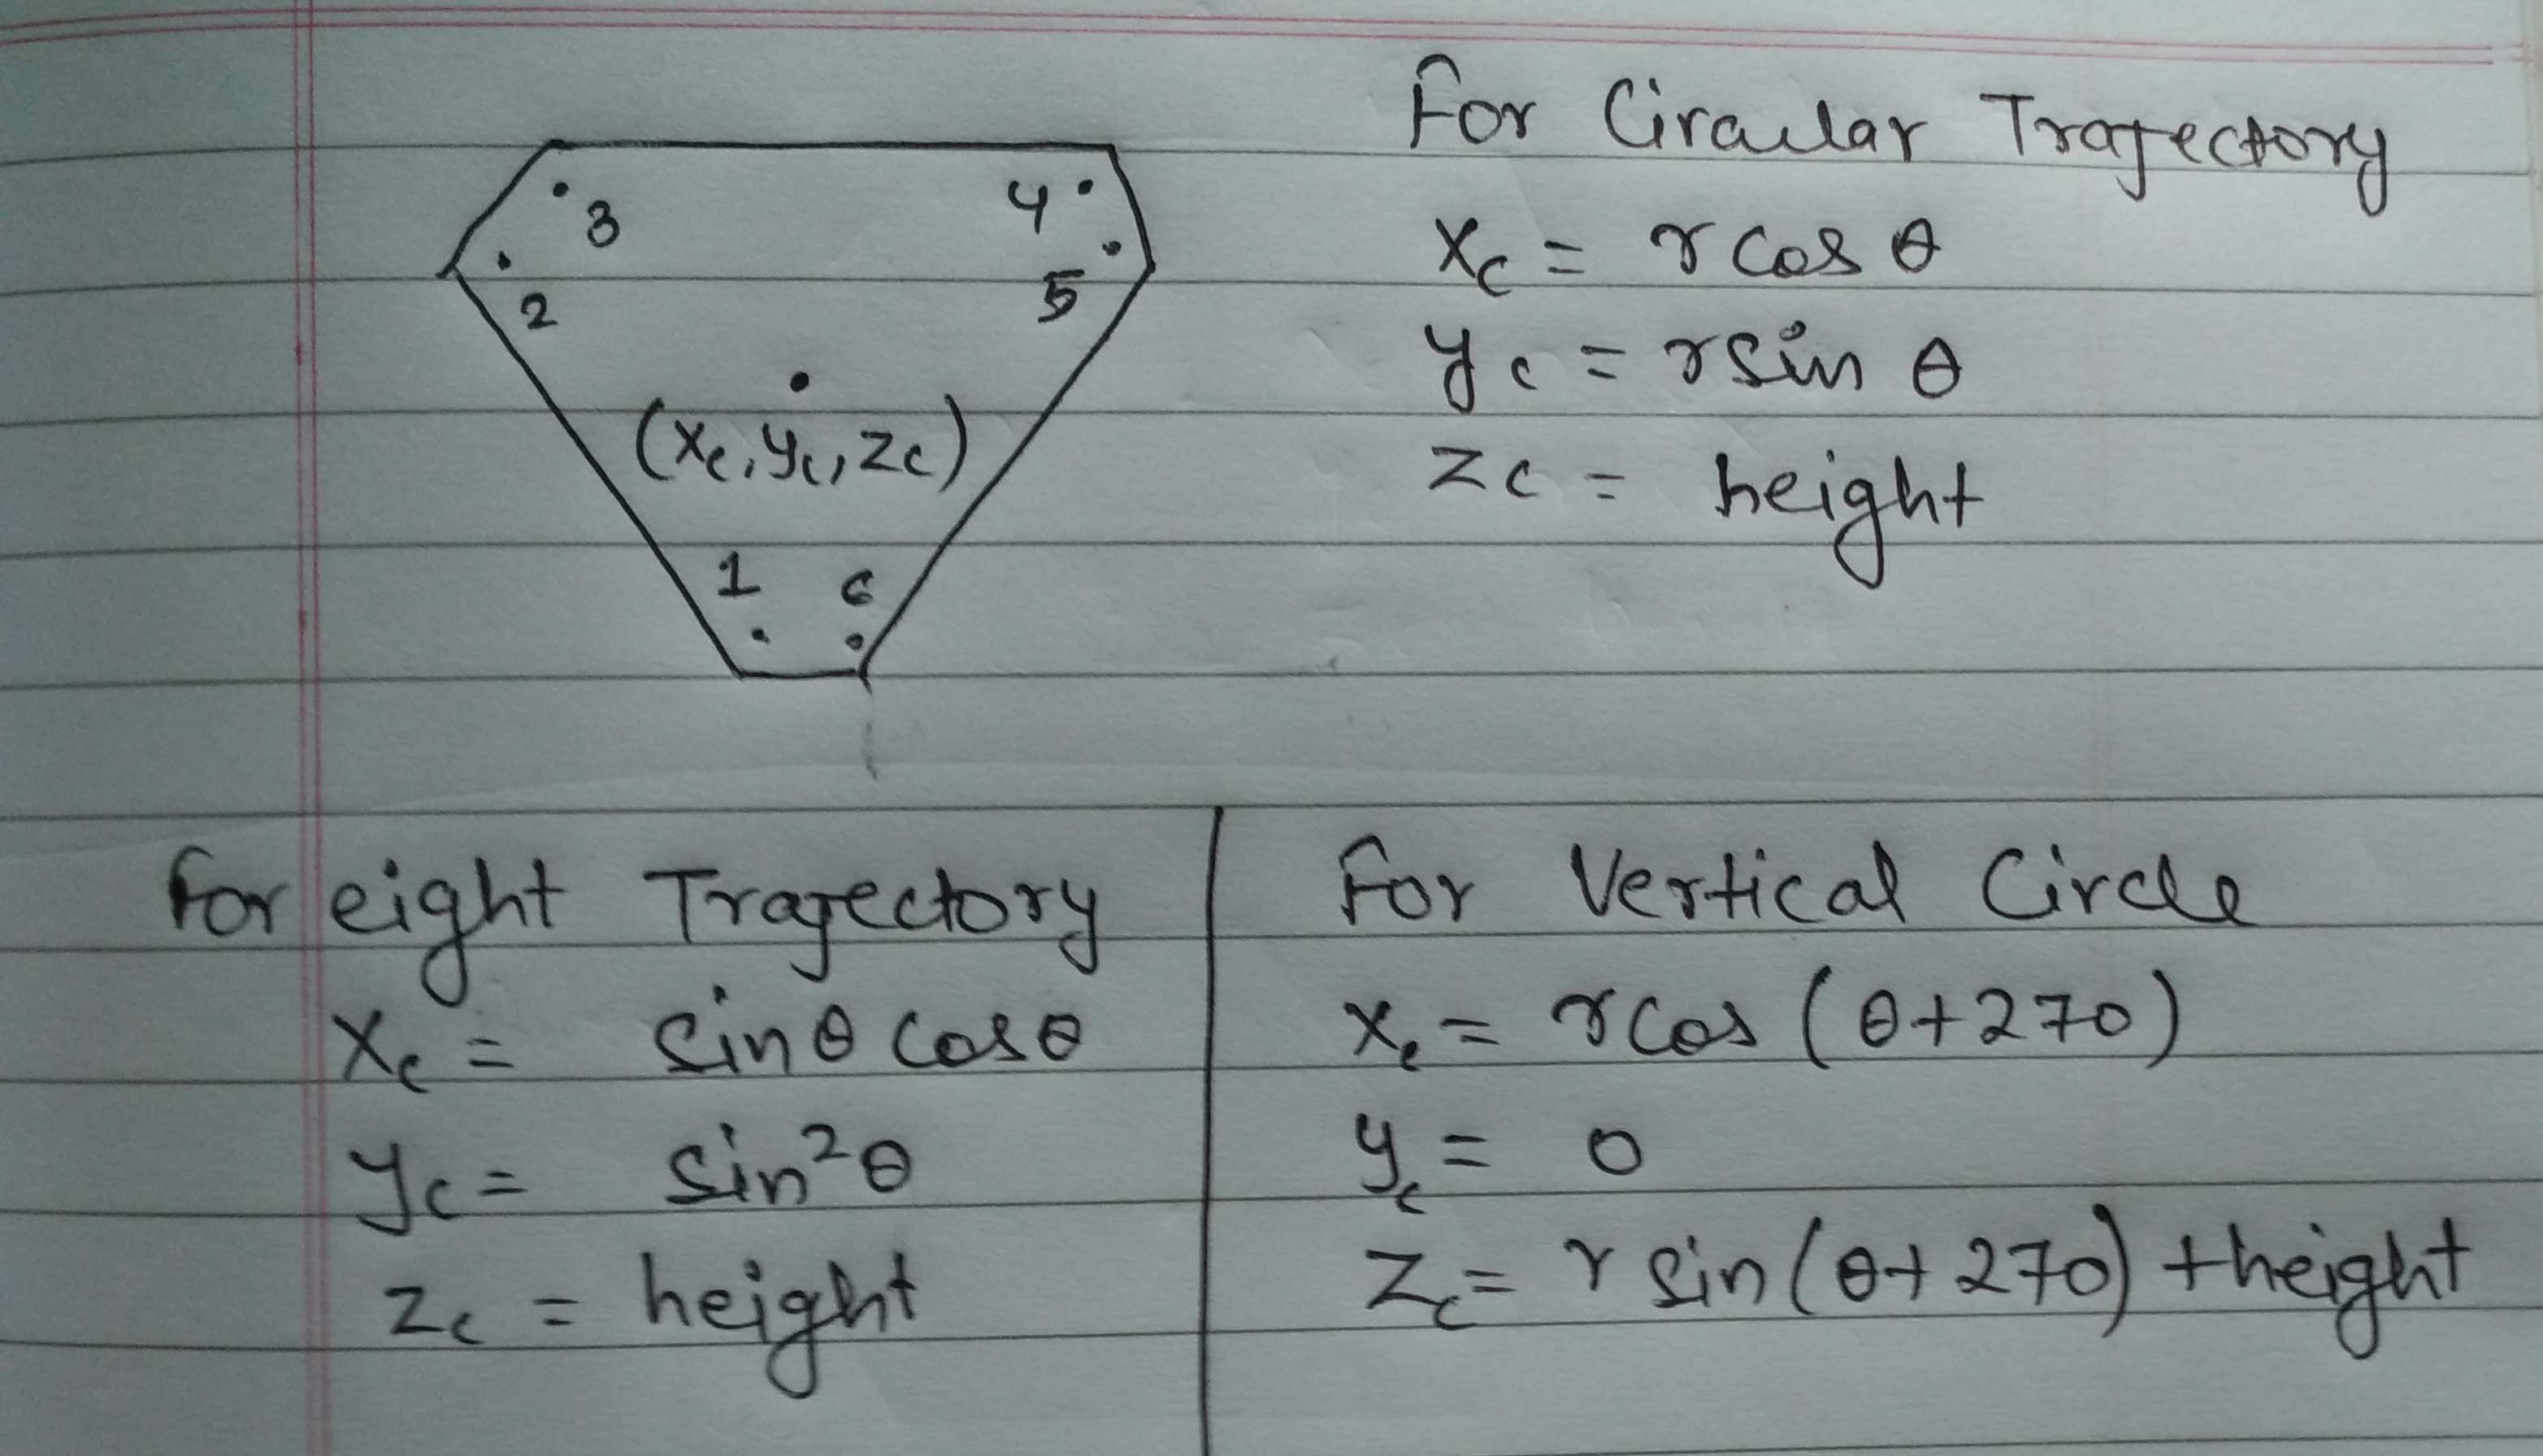 For Circular Trajectory
3
4
2
5
xc = r cos θ
yc = r sin θ
(xc, yc, zc)
zc = height
1 6
For eight Trajectory
xc = sin θ cos θ
yc = sin²θ
zc = height
For Vertical Circle
xc = r cos (θ+270)
yc = 0
zc = r sin (θ+270) + height